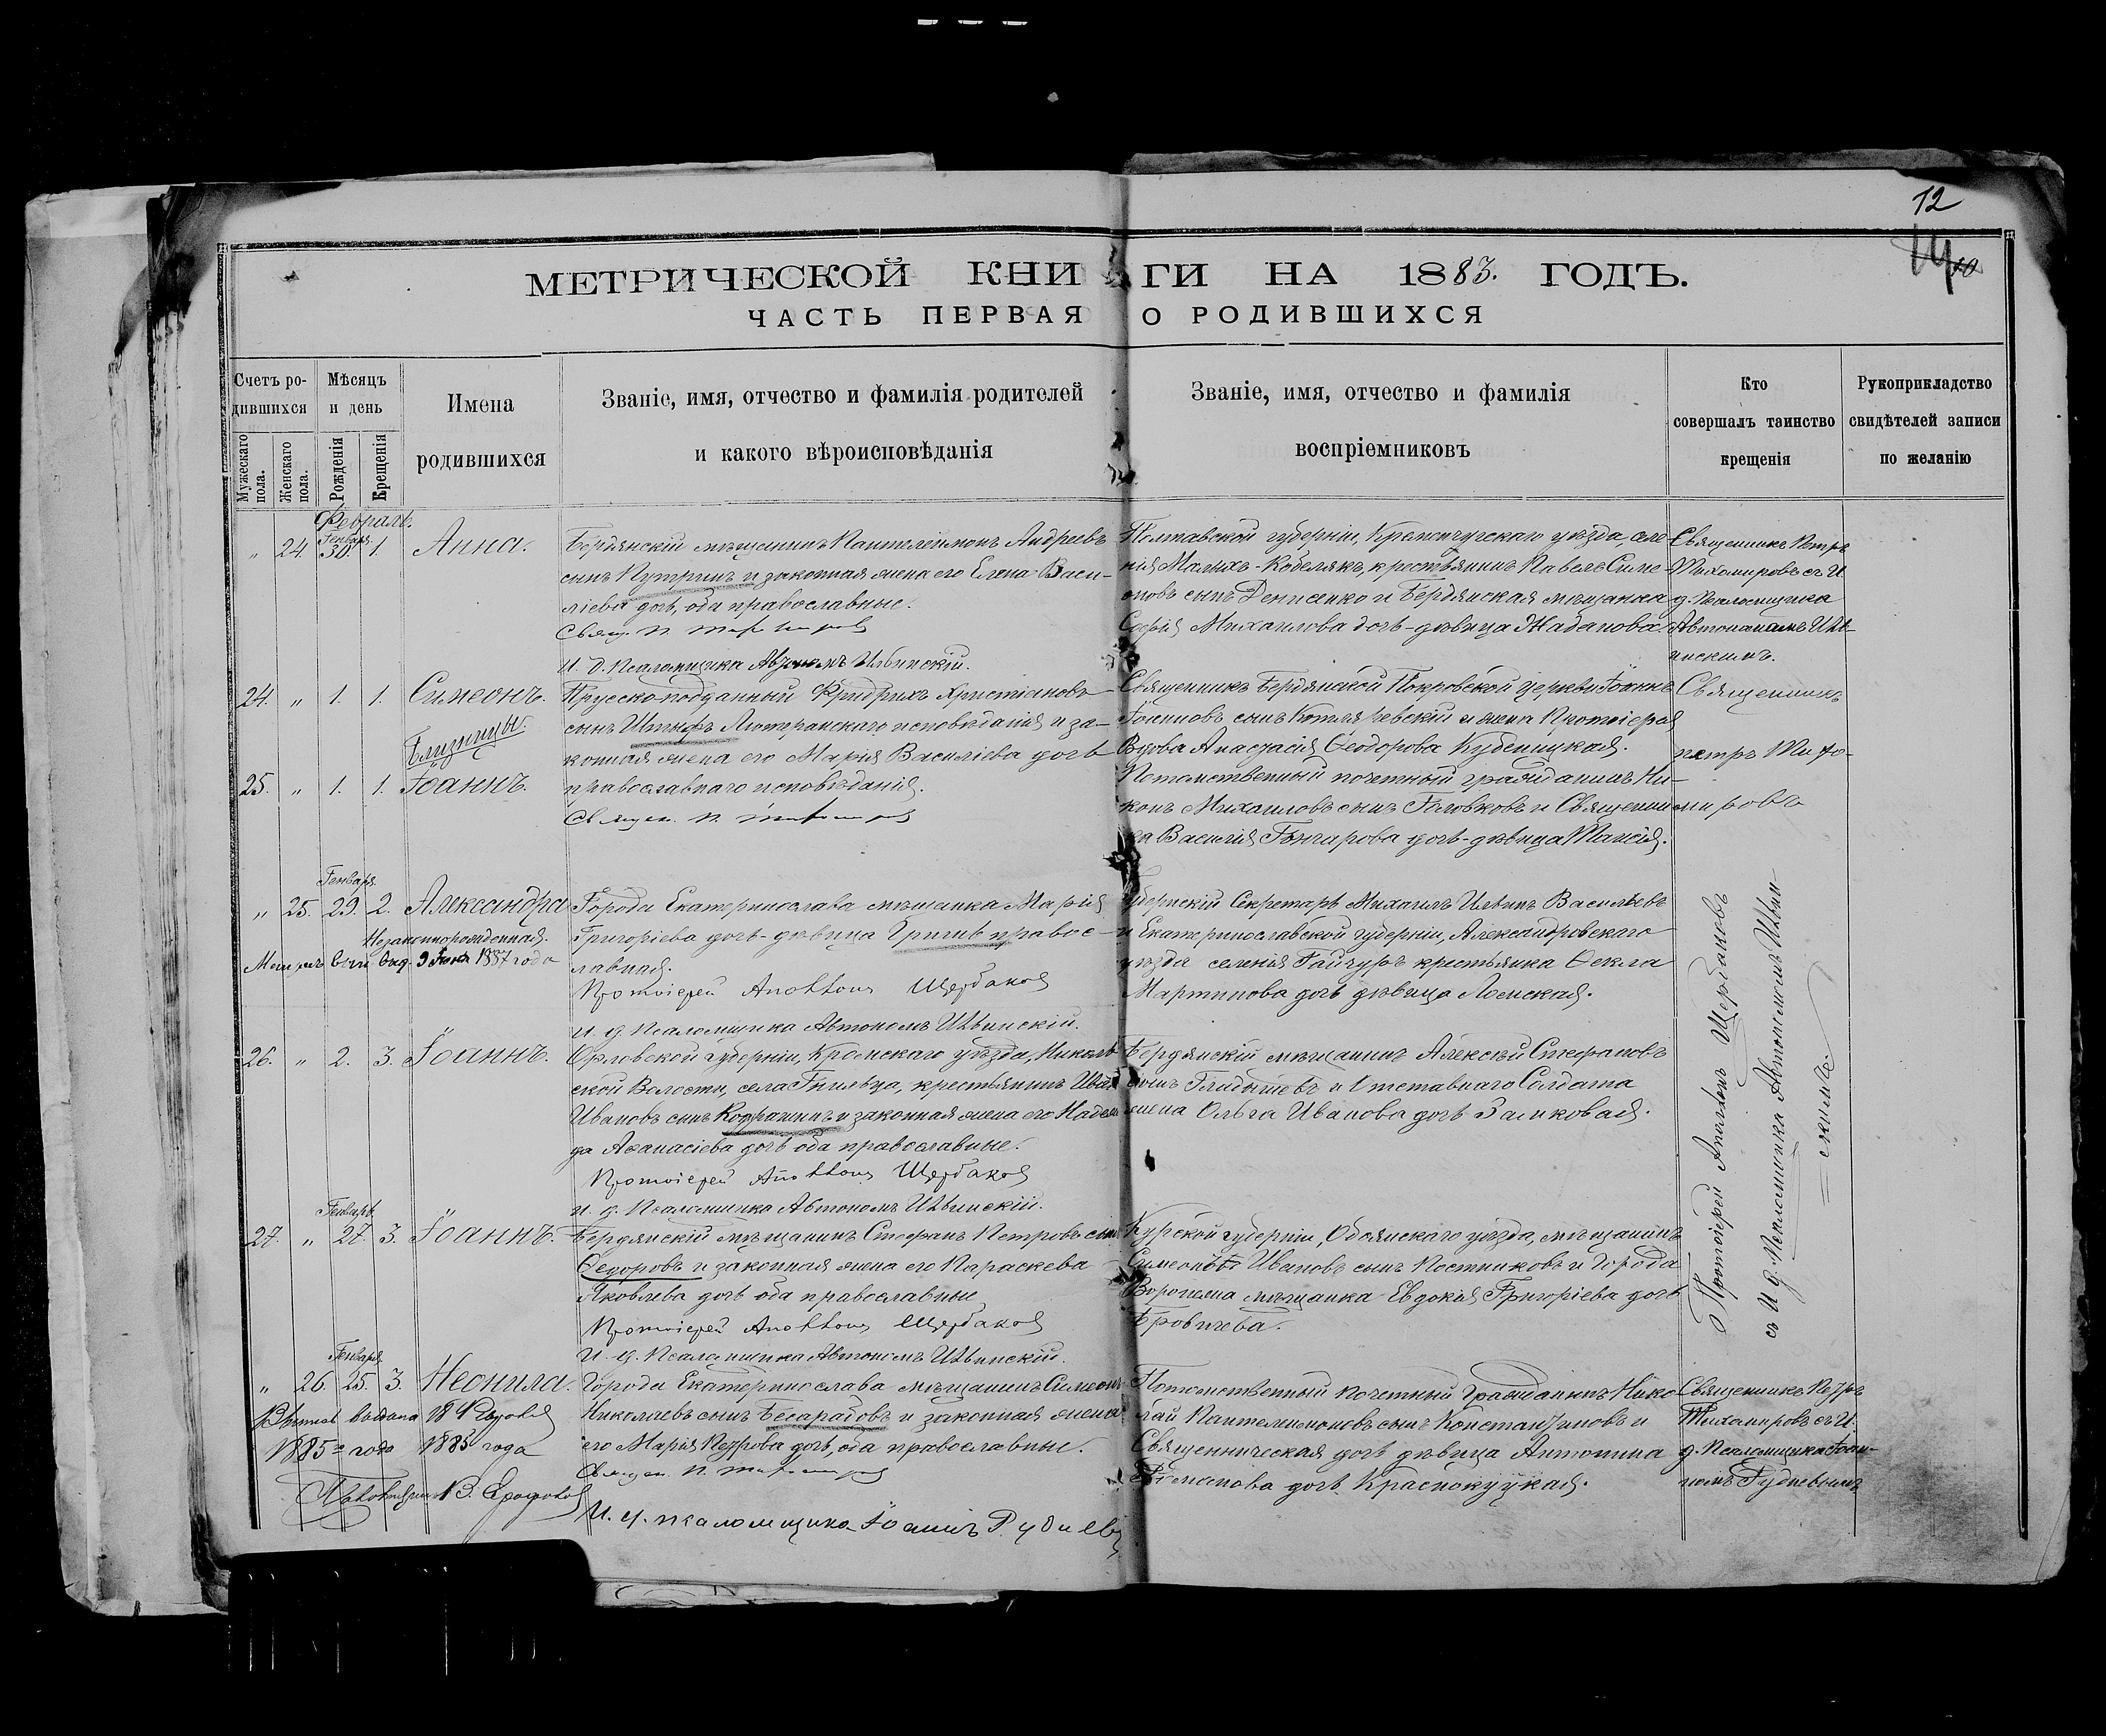 12
МЕТРИЧЕСКОЙ КНИГИ НА 1883. ГОДЪ.
ЧАСТЬ ПЕРВАЯ О РОДИВШИХСЯ
Счетъ родившихся
Мужескаго пола.
Женскаго пола.
Мѣсяцъ и день
Рожденія
Крещенія
Имена
родившихся
Званіе, имя, отчество и фамилія родителей
и какого вѣроисповѣданія
Званіе, имя, отчество и фамилія
воспріемниковъ
Кто
совершалъ таинство
крещенія
Рукоприкладство
свидѣтелей записи
по желанію
Февраль.
Генваря
„ 24. 30 1. Анна.
Бердянскій мѣщанинъ Пантелеимонъ Андреевъ
сынъ и законная жена его Елена Васи-
ліева дочь, оба православные.
И. д. Псаломщика Автономъ Ильинскій.
Полтавской губерніи, Кременчугскаго уѣзда, селе-
нія Малыхъ-Кобелякъ, крестьянинъ Павелъ Симе-
оновъ сынъ Денисенко и Бердянская мѣщанка
Софія Михаилова дочь-дѣвица Жаданова.
Священникъ Петръ
Тихомировъ съ И.
д. Псаломщика
Автономомъ Иль-
инскимъ.
24. „ 1. 1. Симеонъ.
Близнецы.
25. „ 1. 1. Іоаннъ.
Прусско-подданный Фридрихъ Христіановъ
сынъ Лютеранскаго исповѣданія и за-
конная жена его Марія Василіева дочь
православнаго исповѣданія.
Священникъ Бердянской Покровской церкви Іоаннъ
Іоанновъ сынъ Котляревскій и жена Протоіерея
Вдова Анастасія Ѳеодорова
Потомственный почетный гражданинъ Ни-
конъ Михаиловъ сынъ Головковъ и Священни-
ка Василія Гончарова дочь-дѣвица Таисія.
Священникъ
Петръ Тихо-
мировъ
Генваря
„ 25. 29. 2. Александра
Незаконнорожденная.
Города Екатеринослава мѣщанка Марія
Григоріева дочь-дѣвица правос-
лавная.
Протоіерей Аполлонъ Щербаковъ
И. д. Псаломщика Автономъ Ильинскій.
Губернскій Секретарь Михаилъ Ильинъ Васильевъ
и Екатеринославской губерніи, Александровскаго
уѣзда селенія Гайчуръ крестьянка Ѳекла
Мартинова дочь дѣвица
26. „ 2. 3. Іоаннъ.
Орловской губерніи, Кромскаго уѣзда, Николь-
ской Волости, села Гнильца, крестьянинъ Иванъ
Ивановъ сынъ и законная жена его Надеж-
да Аѳанасіева дочь оба православные.
Протоіерей Аполлонъ Щербаковъ
И. д. Псаломщика Автономъ Ильинскій.
Бердянскій мѣщанинъ Алексѣй Стефановъ
сынъ Гладышевъ и Отставнаго Солдата
жена Ольга Иванова дочь Замковая.
Протоіерей Аполлонъ Щербаковъ
съ И. д. Псаломщика Автономомъ Ильин-
скимъ.
Генваря
27. „ 27. 3. Іоаннъ.
Бердянскій мѣщанинъ Стефанъ Петровъ сынъ
Ѳедоровъ и законная жена его Параскева
Яковлева дочь оба православные
Протоіерей Аполлонъ Щербаковъ
И. д. Псаломщика Автономъ Ильинскій.
Курской губерніи, Обоянскаго уѣзда, мѣщанинъ
Симеонъ Ивановъ сынъ Постниковъ и Города
Воронежа мѣщанка Евдокія Григоріева дочь
Генваря
„ 26. 25. 3. Неонила.
1885 года
Города Екатеринослава мѣщанинъ Симеонъ
Николаевъ сынъ Бесарабовъ и законная жена
его Марія Петрова дочь, оба православные.
И. д. псаломщика Іоаннъ Рудневъ
Потомственный Почетный Гражданинъ Нико-
лай Пантелимоновъ сынъ Константиновъ и
Священническая дочь дѣвица Антонина
дочь Краснокутская.
Священникъ Петръ
Тихомировъ съ И.
д. Псаломщика Іоан-
номъ Рудневымъ